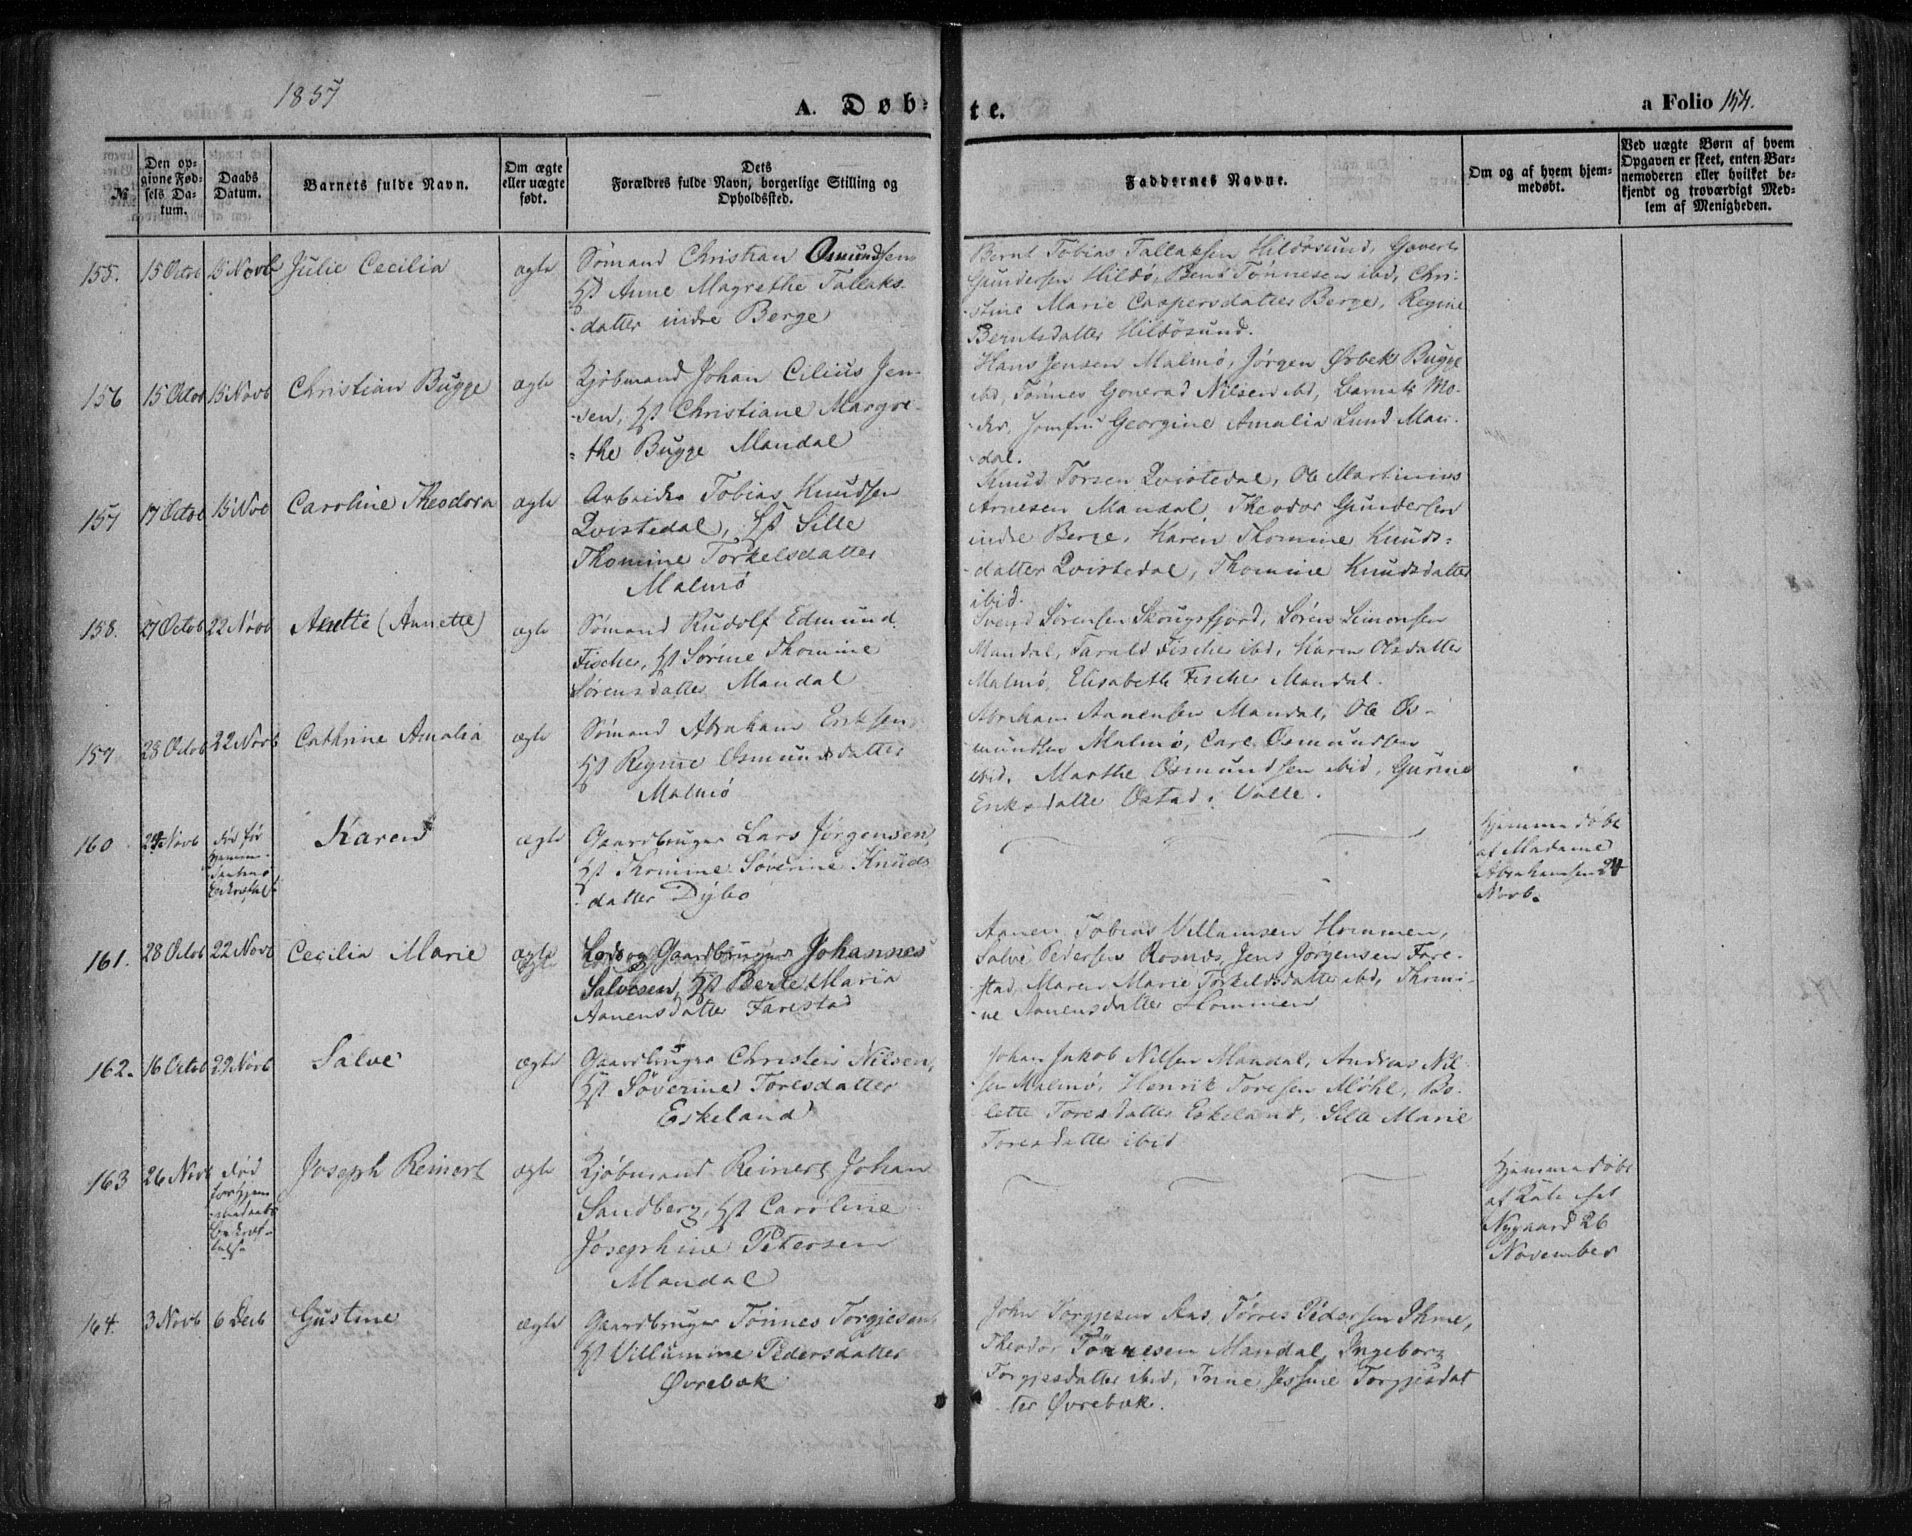 1857
A. Døbte.
a Folio 154.
№
Den opgivne Fødsels Datum.
Daabs Datum.
Barnets fulde Navn.
Om ægte eller uægte født.
Dets Forældres fulde Navn, borgerlige Stilling og Opholdssted.
Faddernes Navne.
Om og af hvem hjemmedøbt.
Ved uægte Børn af hvem Opgaven er skeet, enten Barnemoderen eller hvilket bekjendt og troværdigt Medlem af Menigheden.
155. 15 Octob 15 Novb Julie Cecilia ægte
Sømand Christian Osmundsen
Hst Anne Magrethe Tallaks-
datter indre Berge
Bernt Tobias Tallaksen Hildøsund, Govert
Gundersen Hildø, Bend Tønnesen ibd, Chri-
stine Marie Caspersdatter Berge, Regine
Berntsdatter Hildøsund.
156 15 Octob 15 Novb Christian Bugge ægte
Kjøbmand Johan Cilius Jen-
sen, Hst Christiane Margre-
the Bugge Mandal
Hans Jensen Malmø, Jørgen Ørbek Bugge
ibd, Tønnes Gonerad Nilsen ibd, Barnets Mo-
der, Jomfru Georgine Amalia Lund Man-
dal.
157 17 Octob 15 Nov Caroline Theodora ægte
Arbeider Tobias Knudsen
Qvistedal, Hst Sille
Thomine Torkelsdatter
Malmø
Knud Torsen Qvistedal, Ole Martinius
Arnesen Mandal, Theodor Gundersen
indre Berge, Karen Thomine Knuds-
datter Qvistedal, Thomine Knudsdatter
ibid.
158. 27 Octob 22 Novb Anette (Annette) ægte
Sømand Rudolf Edmund
Fischer, Hst Sørine Thomine
Sørensdatter Mandal
Svend Sørensen Skougsfjord, Søren Simonsen
Mandal, Farald Fischer ibd, Karen Olsdatter
Malmø, Elisabeth Fischer Mandal.
159. 28 Octob 22 Novb Cathrine Amalia ægte
Sømand Abraham Eriksen,
Hst Regine Osmundsdatter
Malmø
Abraham Aanensen Mandal, Ole Os-
mundsen Malmø, Carl Osmundsen
ibid, Marthe Osmundsen ibid, Gurine
Eriksdatter Østad i Valle.
160 24 Novb død før
Hjemme-
daabens
Bekræftelse
Karen ægte
Gaardbruger Lars Jørgensen,
Hst Thomine Søverine Knuds
datter Dybo
Hjemmedøbt
af Madame
Abrahamsen 24
Novb.
161. 28 Octob 22 Novb Cecilia Marie ægte
ægte
Lods og Gaardbruger Johannes
Salvesen, Hst Berte Maria
Aanensdatter Farestad
Aanen Tobias Villumsen Hommen,
Salve Pedersen Rosnes, Jens Jørgensen Fare-
stad, Maren Marie Torkeldsdatter ibd, Thomi-
ne Aanensdatter Hommen
162. 16 Octob 29 Novb Salve ægte
Gaardbruger Christen Nilsen,
Hst Søverine Toresdatter
Eskeland
Johan Jakob Nilsen Mandal, Andreas Nil-
sen Malmø, Henrik Toresen Møhl, Bo-
lette Toresdatter Eskeland, Sille Marie
Toresdatter ibid
163 26 Novb død
før Hjem-
medaabs
Bekræf-
telse
Joseph Reinert ægte
Kjøbmand Reinert Johan
Sandberg, Hst Caroline
Josephine Petersen
Mandal
Hjemmedøbt
af Kateket
Nygaard 26
November
164. 3 Novb 6 Decb Gustine ægte
Gaardbruger Tønnes Torgjesen,
Hst Villumine Pedersdatter
Øvrebøk
John Torgjesen Aas, Tørres Pedersen Ihme,
Theodor Tønnesen Mandal, Ingeborg
Torgjesdatter ibid, Trine Jessine Torgjesdat
ter Øvrebøk.